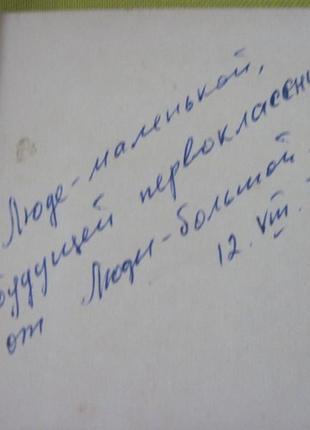 Люде-маленькой,
будущей первоклассни
от Люды-большой
12. VIII.